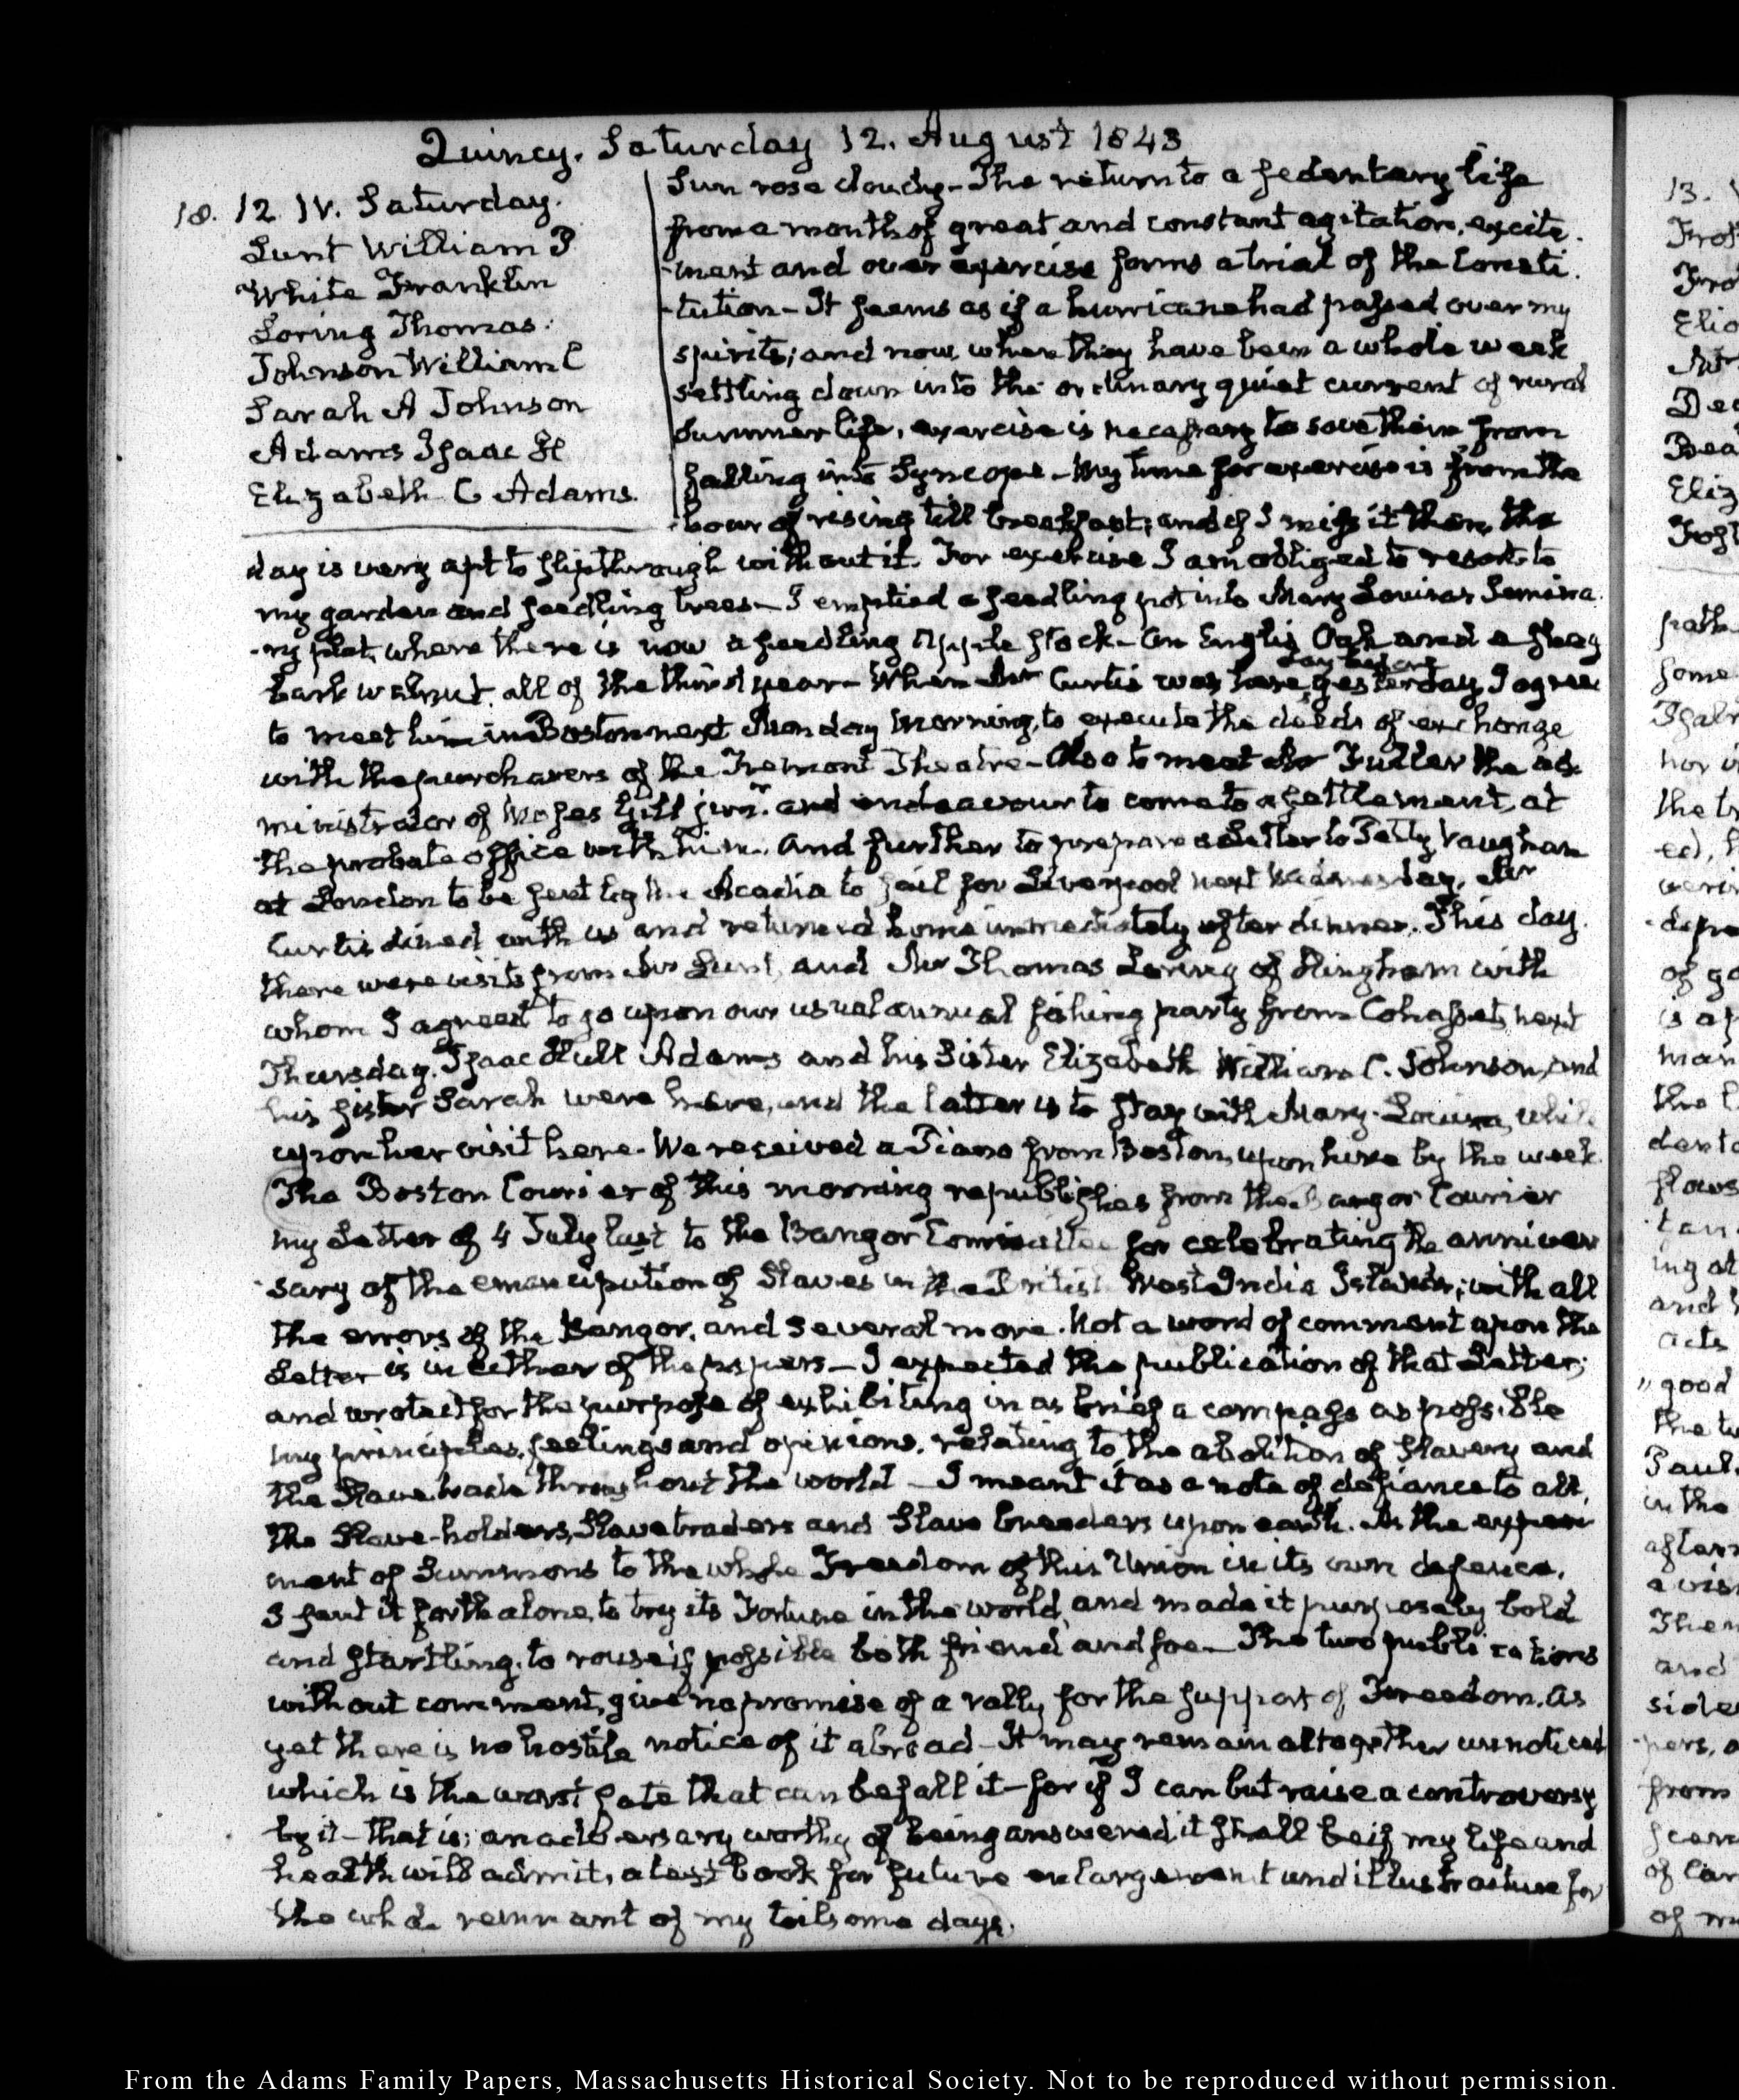 Quincy. Saturday 12. August 1843
18. 12. IV. Saturday.
Lunt William P
White Franklin
Loring Thomas.
Johnson William C
Sarah A Johnson
Adams Isaac H
Elizabeth C Adams.
Sun rose cloudy – The return to a sedentary life
from a month of great and constant agitation, excite-
-ment and over exercise forms a trial of the Consti-
-tution – It seems as if a hurricane had passed over my
spirits; and now when they have been a whole week
settling down into the ordinary quiet current of rural
Summer life, exercise is necessary to save them from
falling into Syncope – My time for exercise is from the
hour of rising till breakfast; and if I miss it then, the
day is very apt to slip through without it. For exercise I am obliged to resort to
my garden and seedling trees – I emptied a seedling pot into Mary Louisa's Semina-
-ry plat, where there is now a seedling Apple stock – An English Oak and a shag
bark walnut, all of the third year – When Mr Curtis was here
day before
yesterday, I agree
to meet him in Boston next Monday Morning, to execute the deeds of exchange
with the purchasers of the Tremont Theatre – Also to meet Mr Fuller the ad-
ministrator of Moses Gill junr. and endeavour to come to a settlement, at
the probate office with him. And further to prepare a Letter to Petty Vaughan
at London to be sent by the Acadia to sail for Liverpool next Wednesday. Mr
Curtis dined with us and returned home immediately after dinner. This day
there were visits from Mr Lunt, and Mr Thomas Loring of Hingham with
whom I agreed to go upon our usual annual fishing party from Cohasset, next
Thursday. Isaac Hull Adams and his Sister Elizabeth William C. Johnson, and
his sister Sarah were here, and the latter is to stay with Mary-Louisa, while
upon her visit here. We received a Piano from Boston, upon hire by the week.
The Boston Courier of this morning republishes from the Bangor Courier
my Letter of 4 July last to the Bangor Committee for celebrating the anniver
-sary of the emancipation of Slaves in the British West India Islands; with all
the errors of the Bangor, and several more. Not a word of comment upon the
Letter is in either of the papers – I expected the publication of that Letter;
and wrote it for the purpose of exhibiting in as brief a compass as possible
my principles, feelings and opinions, relating to the abolition of Slavery and
the Slave trade throughout the world – I meant it as a note of defiance to all,
the Slave-holders, Slave traders and Slave breeders upon earth. As the experi
ment of Summons to the whole Freedom of this Union in its own defence,
I sent it forth alone, to try its Fortune in the world, and made it purposely bold
and startling, to rouse if possible both friend and foe – The two publications
without comment, give no promise of a rally for the support of Freedom. As
yet there is no hostile notice of it abroad – It may remain altogether unnoticed
which is the worst fate that can befall it – for if I can but raise a controversy
by it – that is; an adversary worthy of being answered, it shall be if my life and
health will admit, a text book for future enlargement and illustration for
the whole remnant of my toilsome days.
13.
Eliz
path
some
nor
the
of
is
man
the
and
acts
"good
Paul.
in the
and
from
of
From the Adams Family Papers, Massachusetts Historical Society. Not to be reproduced without permission.